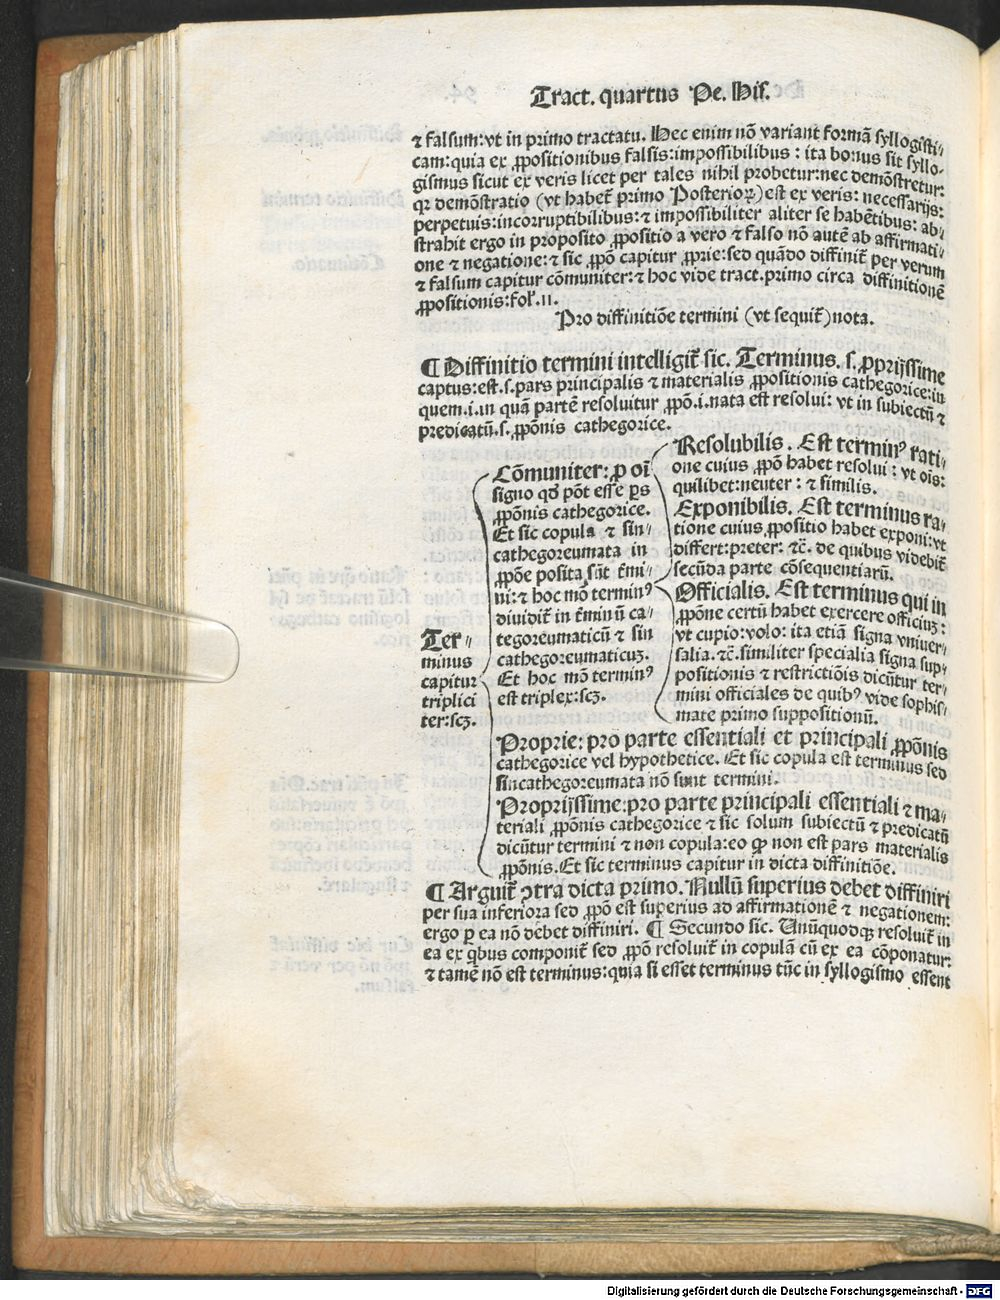 Tract. quartus Pe. His.
⁊ falsum: vt in primo tractatu. Hec enim nō variant formā syllogisti⸗
cam: quia ex ꝓpositionibus falsis: impossibilibus : ita bonus sit syllo⸗
gismus sicut ex veris licet per tales nihil probetur: nec demōstretur:
qꝛ demōstratio (vt habet᷑ primo Posterioꝝ) est ex veris: necessarijs:
perpetuis: incorruptibilibus: ⁊ impossibiliter aliter se habētibus: ab⸗
strahit ergo in proposito ꝓpositio a vero ⁊ falso nō autē ab affirmati⸗
one ⁊ negatione: ⁊ sic ꝓpō capitur ꝓprie: sed quādo diffinit᷑ per verum
⁊ falsum capitur cōmuniter: ⁊ hoc vide tract. primo circa diffinitionē
ꝓpositionis: fol. 11.
Pro diffinitiōe termini (vt sequit᷑) nota.
¶ Diffinitio termini intelligit᷑ sic. Terminus. s. ꝓprijssime
captus: est. s. pars principalis ⁊ materialis ꝓpositionis cathegorice: in
quem. i. in quā partē resoluitur ꝓpō. i. nata est resolui: vt in subiectū ⁊
predicatū. s. ꝓpōnis cathegorice.
Ter⸗
minus
capitur
triplici
ter: scꝫ.
Cōmuniter: ꝓ oī
signo qd̕ pōt esse ꝑs
ꝓpōnis cathegorice.
Et sic copula ⁊ sin⸗
cathegoreumata in
ꝓpōe posita sūt t̄mi⸗
ni: ⁊ hoc mō terminꝰ
diuidit᷑ in t̄minū ca⸗
tegoreumaticū ⁊ sin
cathegoreumaticuꝫ.
Et hoc mō terminꝰ
est triplex: scꝫ.
Resolubilis. Est terminꝰ rati⸗
one cuius ꝓpō habet resolui : vt oīs:
quilibet: neuter : ⁊ similis.
Exponibilis. Est terminus ra⸗
tione cuius ꝓpositio habet exponi: vt
differt: preter: ⁊c̄. de quibus videbit᷑
secūda parte cōsequentiarū.
Officialis. Est terminus qui in
ꝓpōne certū habet exercere officiuꝫ:
vt cupio: volo: ita etiā signa vniuer⸗
salia. ⁊c̄. similiter specialia signa sup⸗
positionis ⁊ restrictiōis dicūtur ter⸗
mini officiales de quibꝰ vide sophis⸗
mate primo suppositionū.
Proprie: pro parte essentiali et principali ꝓpōnis
cathegorice vel hypothetice. Et sic copula est terminus sed
sincathegoreumata nō sunt termini.
Proprijssime: pro parte principali essentiali ⁊ ma⸗
teriali ꝓpōnis cathegorice ⁊ sic solum subiectū ⁊ predicatū
dicūtur termini ⁊ non copula: eo ꝙ non est pars materialis
ꝓpōnis. Et sic terminus capitur in dicta diffinitiōe.
¶ Arguit᷑ ꝯtra dicta primo. Nullū superius debet diffiniri
per sua inferiora sed ꝓpō est superius ad affirmationē ⁊ negationem:
ergo ꝑ ea nō debet diffiniri. ¶ Secundo sic. Unūquodqꝫ resoluit᷑ in
ea ex qbus componit᷑ sed ꝓpō resoluit᷑ in copulā cū ex ea cōponatur:
⁊ tamē nō est terminus: quia si esset terminus tūc in syllogismo essent
Digitalisierung gefördert durch die Deutsche Forschungsgemeinschaft - DFG